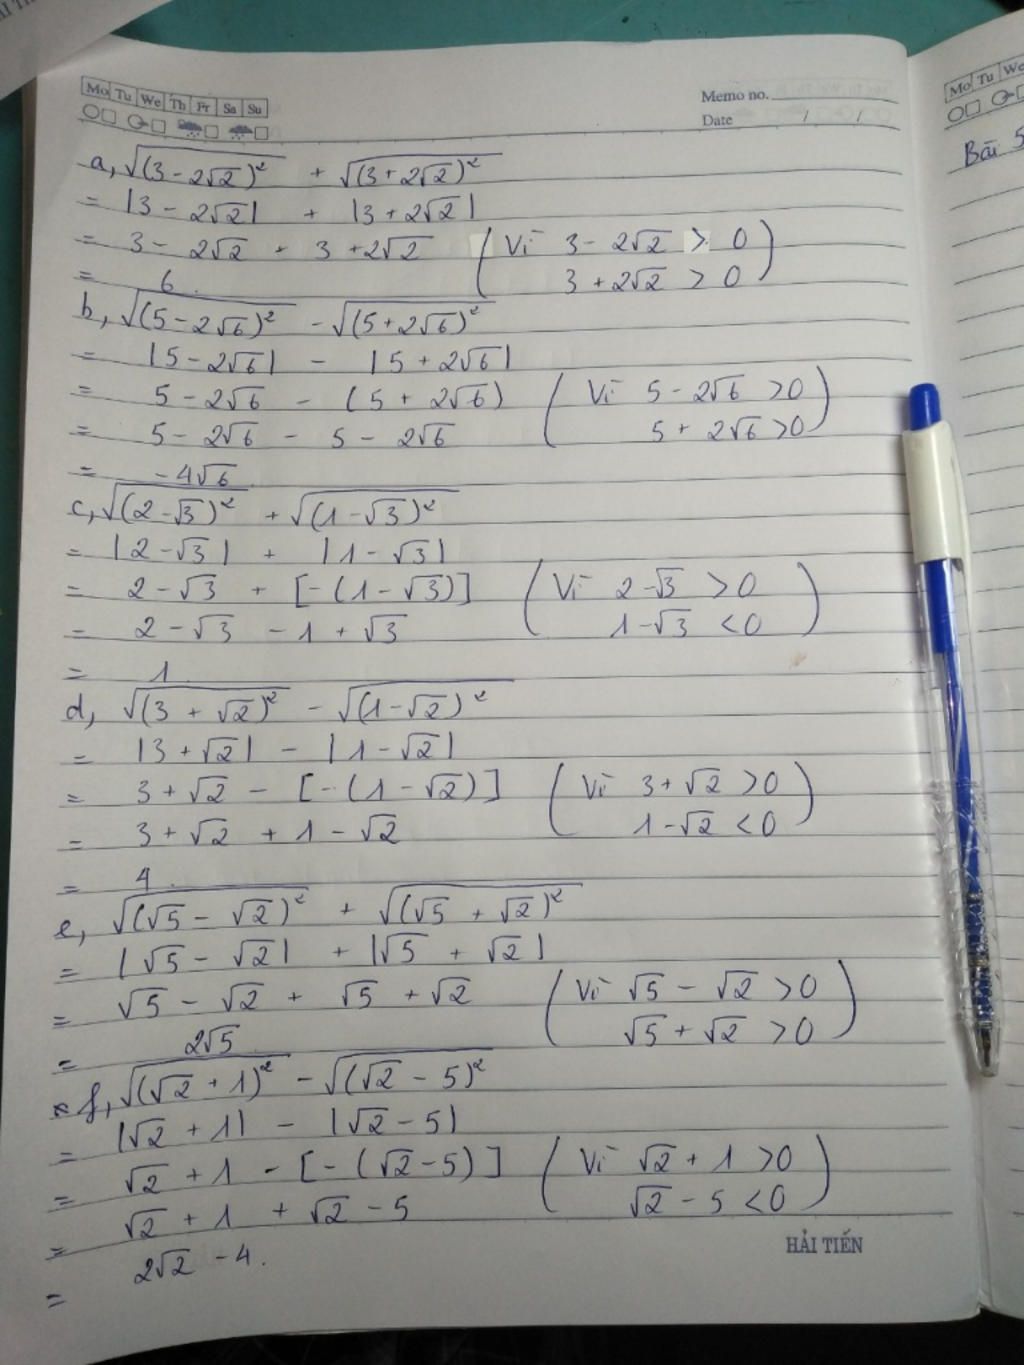 Mo Tu We Th Fr Sa Su
Memo no.
Date / /
a, √(3-2√2)² + √(3+2√2)²
= |3-2√2| + |3+2√2|
= 3-2√2 + 3+2√2 (Vì 3-2√2 > 0
3+2√2 > 0)
= 6.
b, √(5-2√6)² - √(5+2√6)²
= |5-2√6| - |5+2√6|
= 5-2√6 - (5+2√6) (Vì 5-2√6 >0
5+2√6 >0)
= 5-2√6 - 5 - 2√6
= -4√6
c, √(2-√3)² + √(1-√3)²
= |2-√3| + |1-√3|
= 2-√3 + [-(1-√3)] (Vì 2-√3 >0
1-√3 <0)
= 2-√3 - 1 + √3
= 1
d, √(3+√2)² - √(1-√2)²
= |3+√2| - |1-√2|
= 3+√2 - [-(1-√2)] (Vì 3+√2 >0
1-√2 <0)
= 3+√2 + 1-√2
= 4.
e, √(√5-√2)² + √(√5+√2)²
= |√5-√2| + |√5+√2|
= √5-√2 + √5+√2 (Vì √5-√2 >0
√5+√2 >0)
= 2√5
f, √(√2+1)² - √(√2-5)²
= |√2+1| - |√2-5|
= √2+1 - [-(√2-5)] (Vì √2+1 >0
√2-5 <0)
= √2+1 + √2-5
= 2√2-4.
HẢI TIẾN
Mo Tu We
Bài 5